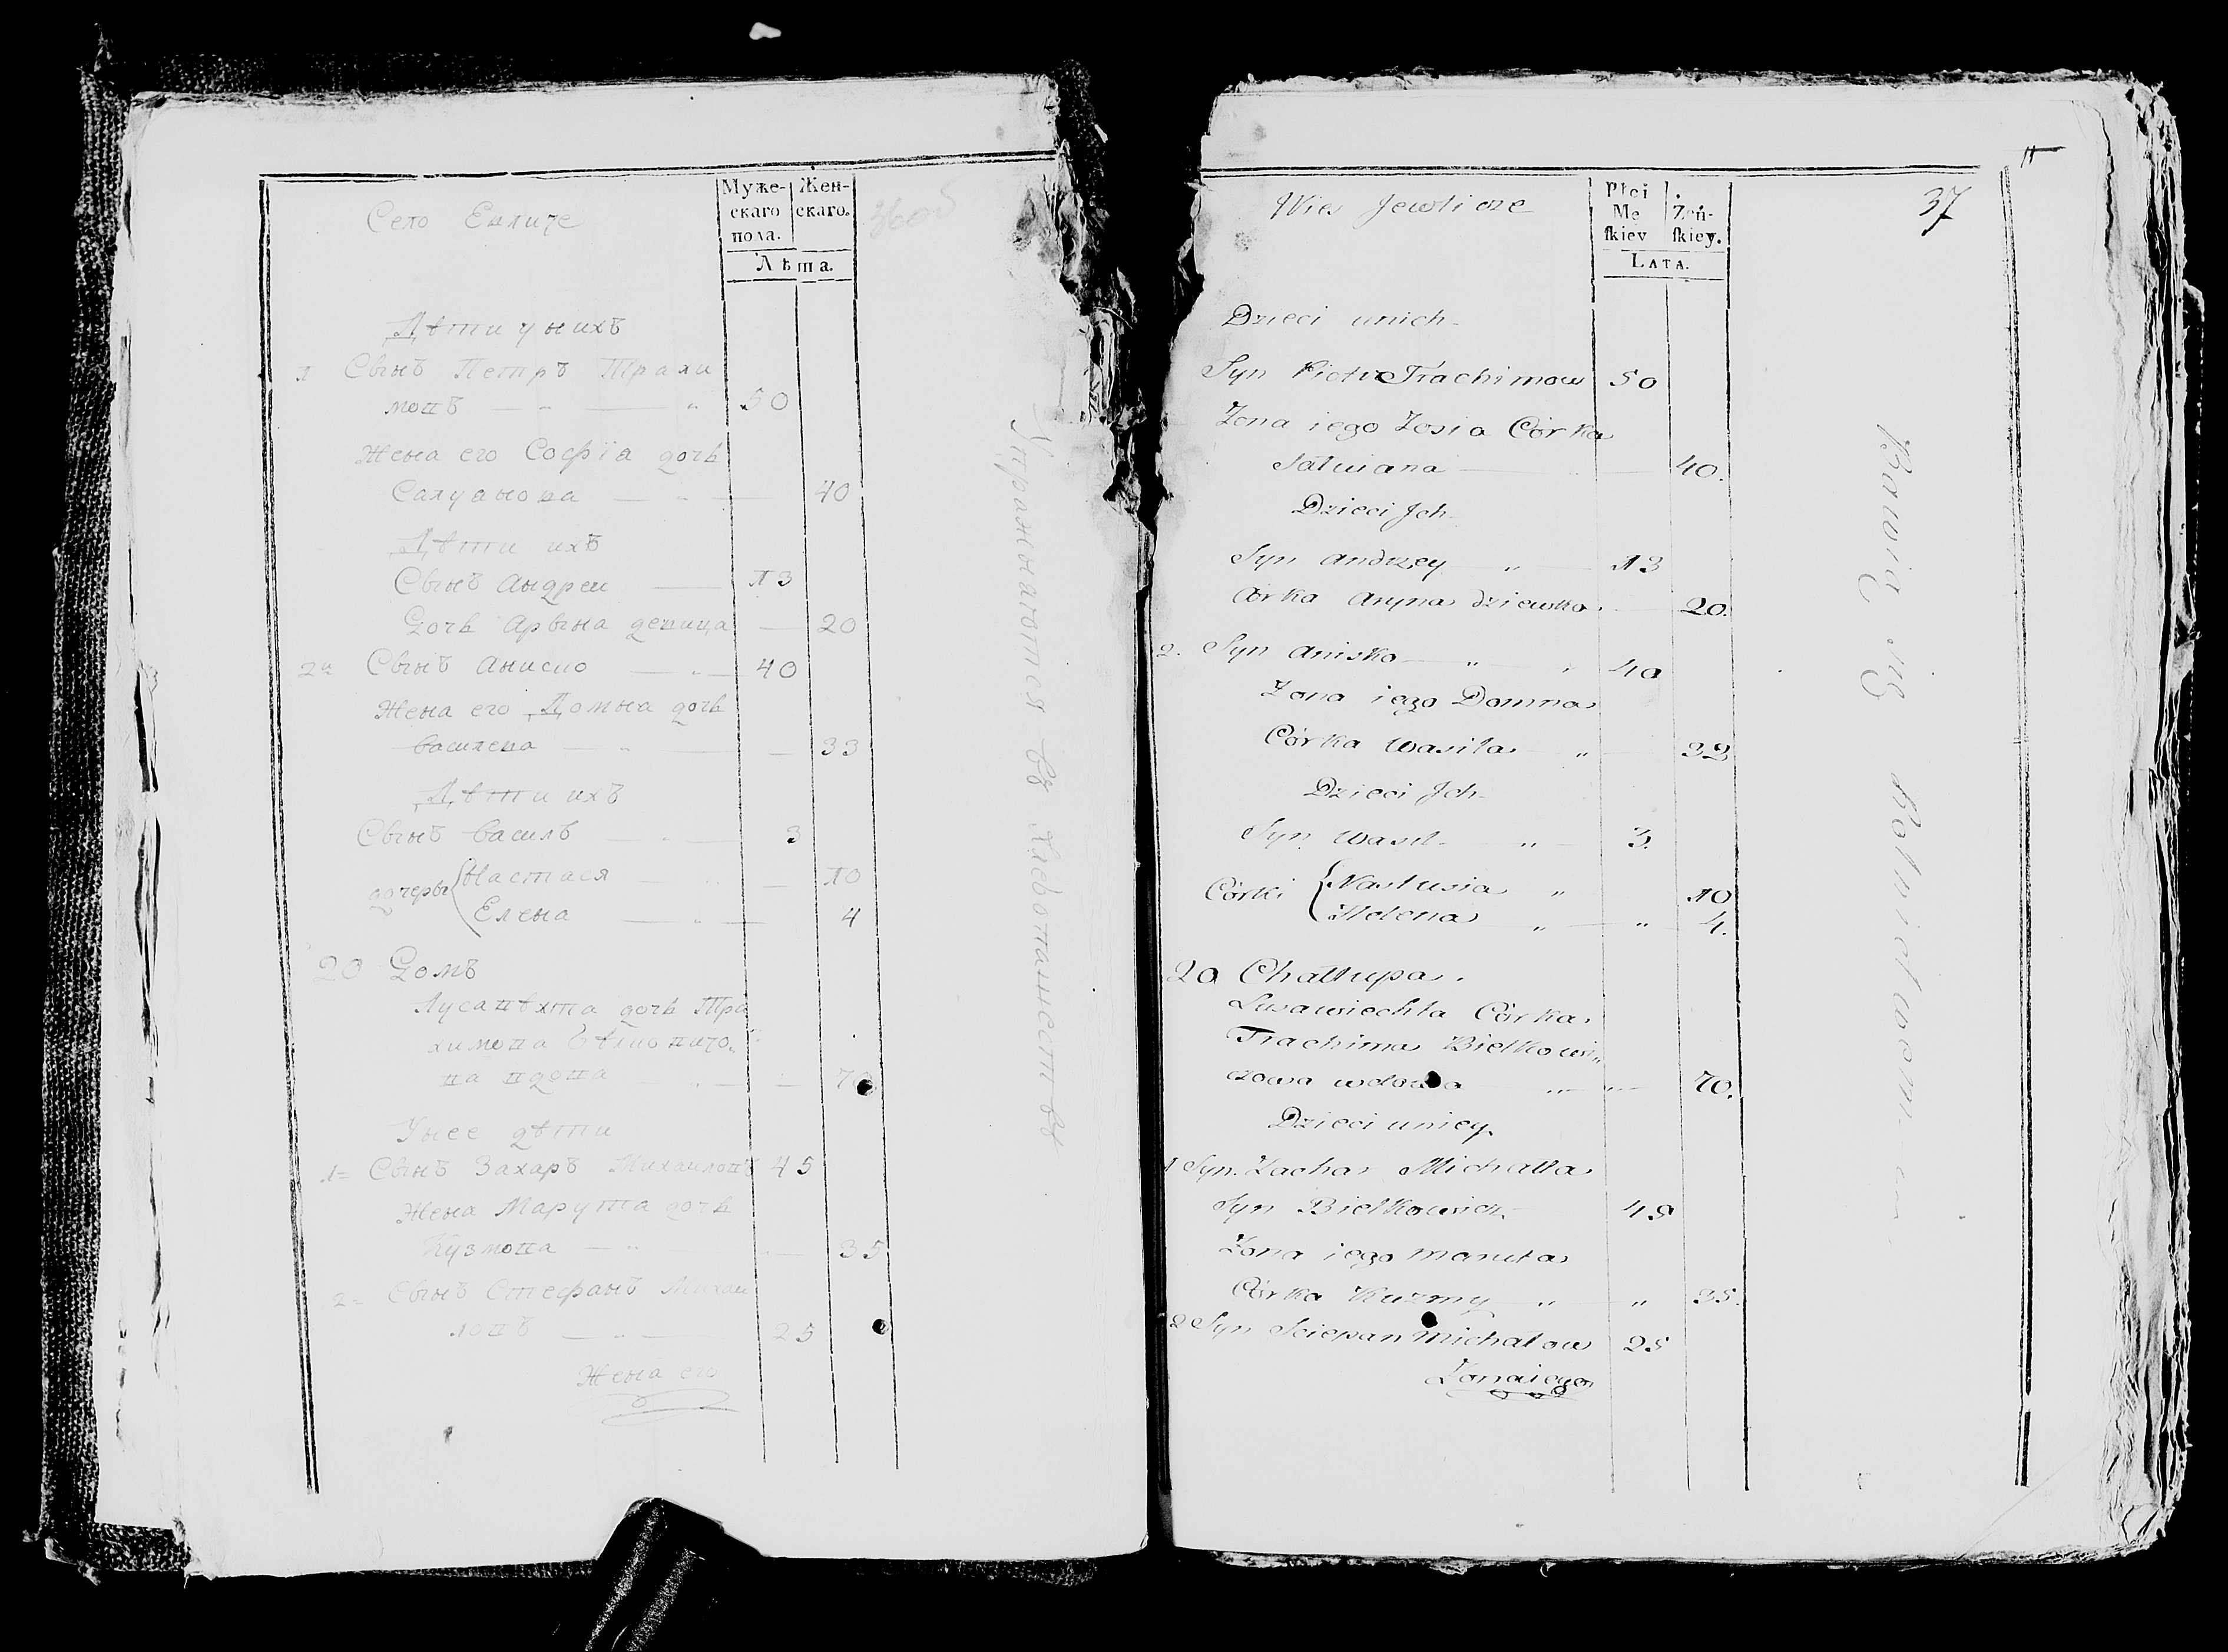 Село Евличе
Муже-
скаго
пола.
Жен-
скаго.
Лѣта.
36об
Дѣти у нихъ
1 Сынъ Петръ Трахи
мовъ — „ — „ 50
Жена его Софїа дочь
Салуанова — „ — 40
Дѣти ихъ
Сынъ Андреи — 13
Дочь Арына девица — 20
2и Сынъ Аниско — „ — 40
Жена его Домна дочь
Василева — „ — 33
Дѣти ихъ
Сынъ Василь — „ — 3
дочеры { Настася — „ — 10
Елена — „ — 4
20 Домъ
Лусавѣхта дочь Тра
химова Бѣлковичо„
ва вдова — „ — 70
У нее дѣти
1= Сынъ Захаръ Михаиловъ 45
Жена Марута дочь
Кузмова — „ — 35
2= Сынъ Стефанъ Михаи
ловъ — „ — 25
Жена его
Упражнаются въ хлебопашествѣ
Wieś Jewlicze
Płci
Mę
skiey
Żeń-
skiey.
LATA.
37
Dzieci unich
Syn Piotr Trachimow 50
Zona iego Zosia Córka
Sałuiana — 40.
Dzieci Jch
Syn Andrzey „ — 13
Córka Aryna dziewka. — 20.
2. Syn Aniśko — „ — „ 40
Zona iego Domna
Córka Wasila „ — 32
Dzieci Jch
Syn Wasil — „ — 3.
Córki { Nastusia „ 10
Helena „ — „ — 4.
20 Chałłupa.
Lusawiechta Córka
Trachima Bielkowi„
czowa wdowa — „ — 70.
Dzieci uniey.
1 Syn Zachar Michałła
Syn Bielkowicz 45
Zona iego Maruta
Córka Kuzmy „ „ 35.
2 Syn Sciepan Michałow 25
Zona iego
Bawią się Rolnictwem